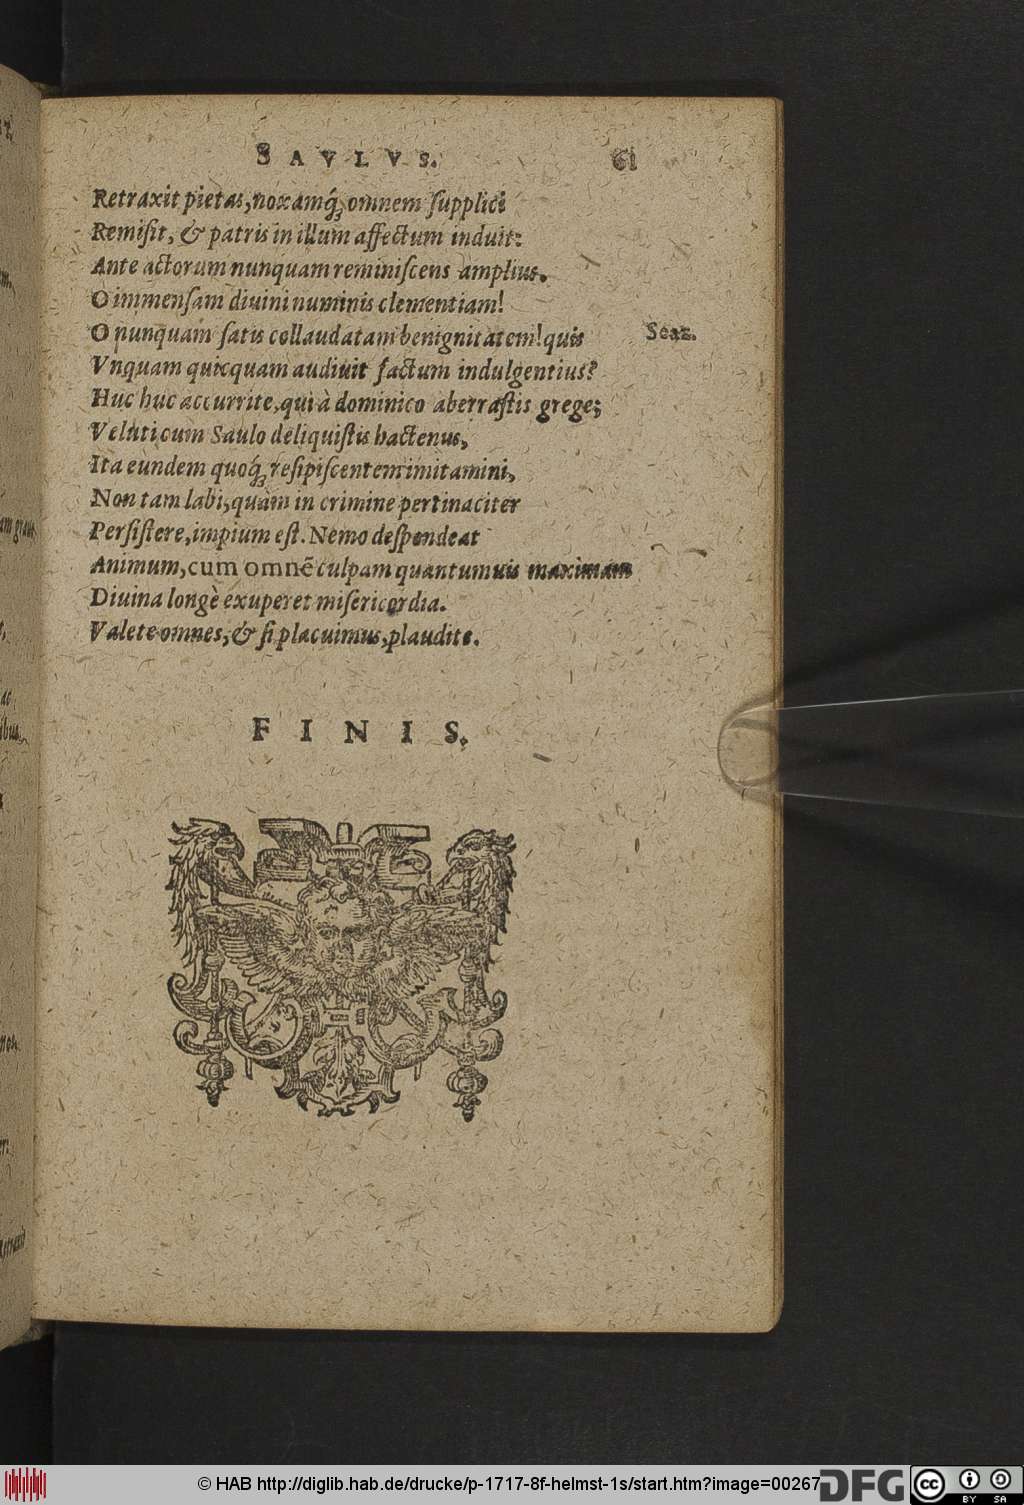 SAVLVS. 61
Retraxit pietas, noxamq́; omnem ſupplici
Remiſit, & patris in illum affectum induit:
Ante actorum nunquam reminiſcens amplius.
O immenſam diuini numinis clementiam!
O nunquam ſatis collaudatam benignitatem! quis Scaz.
Vnquam quicquam audiuit factum indulgentius?
Huc huc accurrite, qui à dominico aberraſtis grege;
Veluti cum Saulo deliquiſtis hactenus,
Ita eundem quoq́; reſipiſcentem imitamini,
Non tam labi, quàm in crimine pertinaciter
Perſiſtere, impium eſt. Nemo deſpondeat
Animum, cum omnē culpam quantumuis maximam
Diuina longè exuperet miſericordia.
Valete omnes, & ſi placuimus, plaudite.
FINIS.
© HAB http://diglib.hab.de/drucke/p-1717-8f-helmst-1s/start.htm?image=00267
DFG
cc BY SA